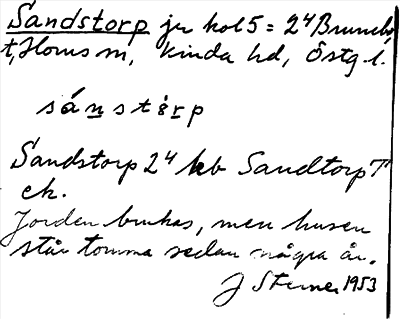 Sandstorp jr kol 5 = 2⁴ Brunebo,
t, Horns sn, Kinda hd, Östg.l.
sánstǝrp
Sandstorp 2⁴ kb Sandtorp T
ek.
Jorden brukas, men husen
står tomma sedan några år.
J Sterner 1953